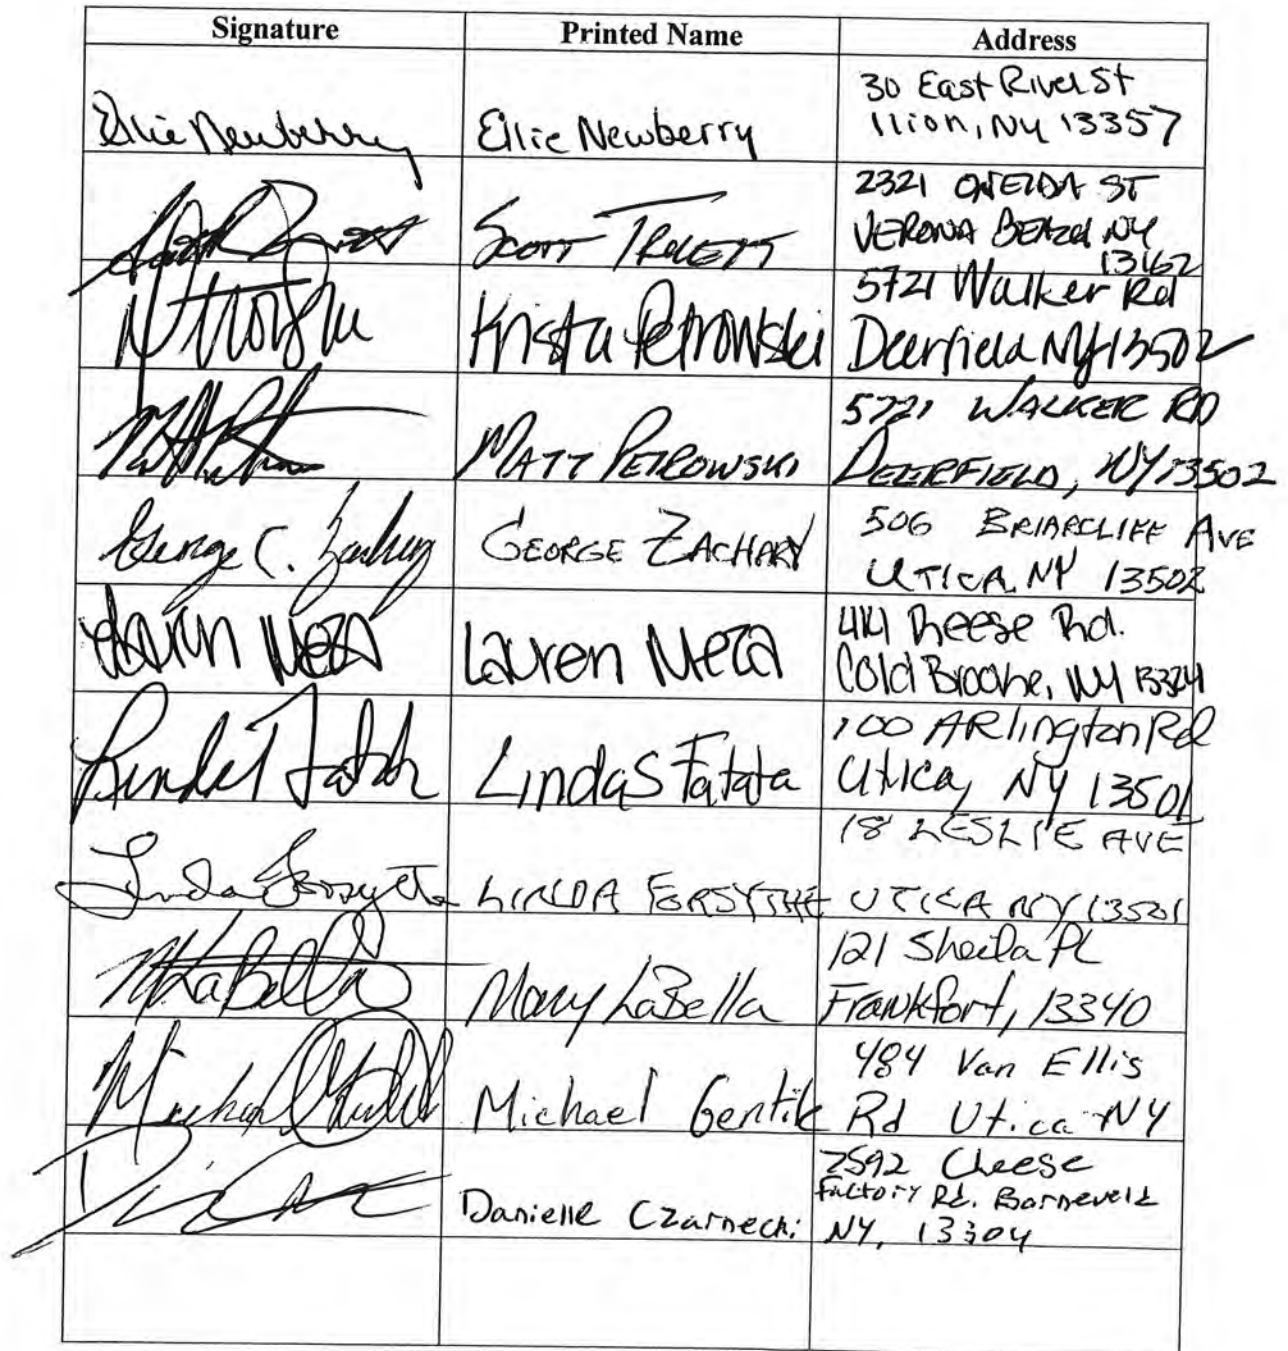 Signature Printed Name Address
Ellie Newberry Ellie Newberry 30 East River St
Ilion, NY 13357
Scott 2321 ONEIDA ST
VERONA BEACH NY
13162
Krista Petrowski 5721 Walker Rd
Deerfield NY 13502
MATT PETROWSKI 5721 WALKER RD
DEERFIELD, NY 13502
George C. Zachary GEORGE ZACHARY 506 BRIARCLIFF AVE
UTICA NY 13502
Lauren Meza Lauren Meza Reese Rd.
Cold Brooke, NY 13324
Linda S Fatata 100 ARlington Rd
Utica, NY 13501
Linda Forsythe LINDA FORSYTHE 18 LESLIE AVE
UTICA NY 13501
M LaBella Mary LaBella 121 Sheila PL
Frankfort, 13340
Michael Michael Gentile 484 Van Ellis
Rd Utica NY
Danielle Czarnecki 7592 Cheese
Factory Rd. Barneveld
NY, 13304